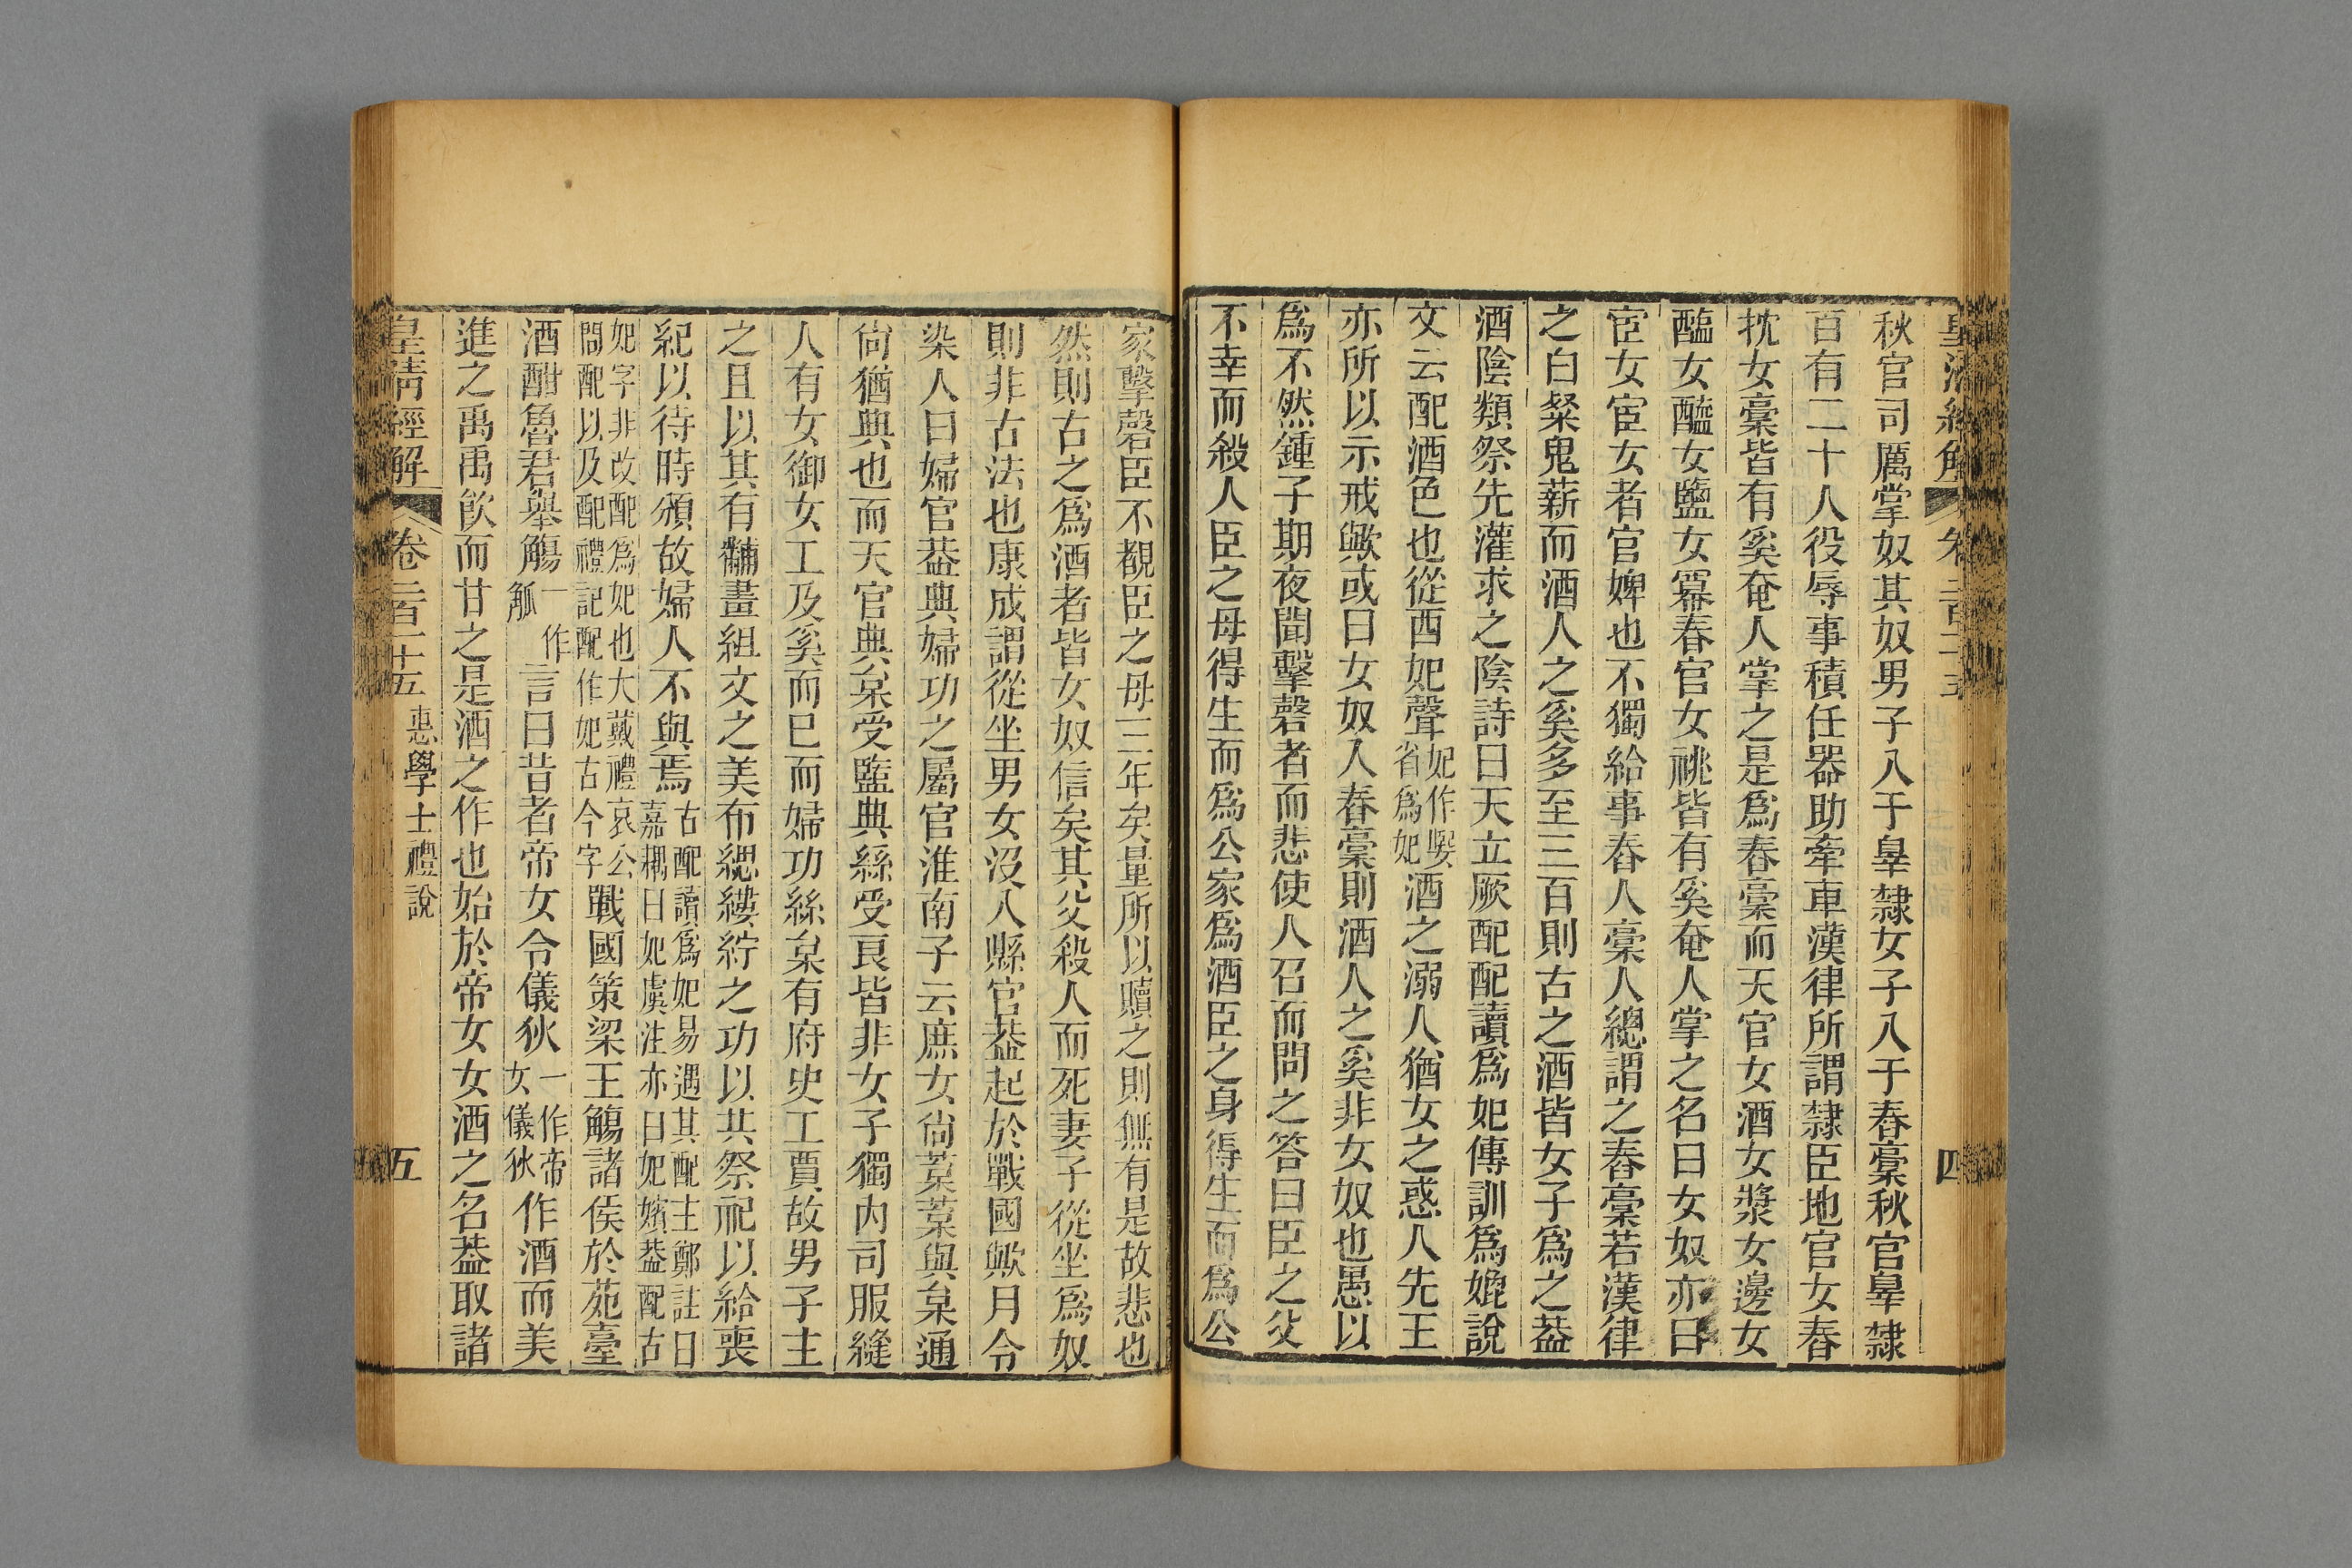 皇清經解 卷二百十五 四
秋官司厲掌奴其奴男子入于皋隸女子入于舂槀秋官皋隸
百有二十人役辱事積任器助牽車漢律所謂隸臣地官女舂
抌女槀皆有奚奄人掌之是爲舂槀而天官女酒女漿女籩女
醢女醯女鹽女冪春官女祧皆有奚奄人掌之名曰女奴亦曰
宦女宦女者官婢也不獨給事舂人槀人總謂之舂槀若漢律
之白粲鬼薪而酒人之奚多至三百則古之酒皆女子爲之葢
酒陰類祭先灌求之陰詩曰天立厥配配讀爲妃傳訓爲媲說
文云配酒色也從酉妃聲妃作娶省爲妃酒之溺人猶女之惑人先王
亦所以示戒歟或曰女奴入舂槀則酒人之奚非女奴也愚以
爲不然鍾子期夜聞擊磬者而悲使人召而問之答曰臣之父
不幸而殺人臣之母得生而爲公家爲酒臣之身得生而爲公
家擊磬臣不覩臣之母三年矣量所以贖之則無有是故悲也
然則古之爲酒者皆女奴信矣其父殺人而死妻子從坐爲奴
則非古法也康成謂從坐男女沒入縣官葢起於戰國歟月令
染人曰婦官葢典婦功之屬官淮南子云庶女尙葈葈與枲通
尙猶典也而天官典枲受監典絲受良皆非女子獨內司服縫
人有女御女工及奚而已而婦功絲枲有府史工賈故男子主
之且以其有黼畫組文之美布緦縷紵之功以共祭祀以給喪
紀以待時頒故婦人不與焉古配讀爲妃易遇其配主鄭註曰嘉耦曰妃虞注亦曰妃嬪葢配古
妃字非改配爲妃也大戴禮哀公問配以及配禮記配作妃古今字戰國策梁王觴諸侯於苑臺
酒酣魯君舉觴一作觚言曰昔者帝女令儀狄一作帝女儀狄作酒而美
進之禹禹飮而甘之是酒之作也始於帝女女酒之名葢取諸
皇清經解 卷二百十五 惠學士禮說 五